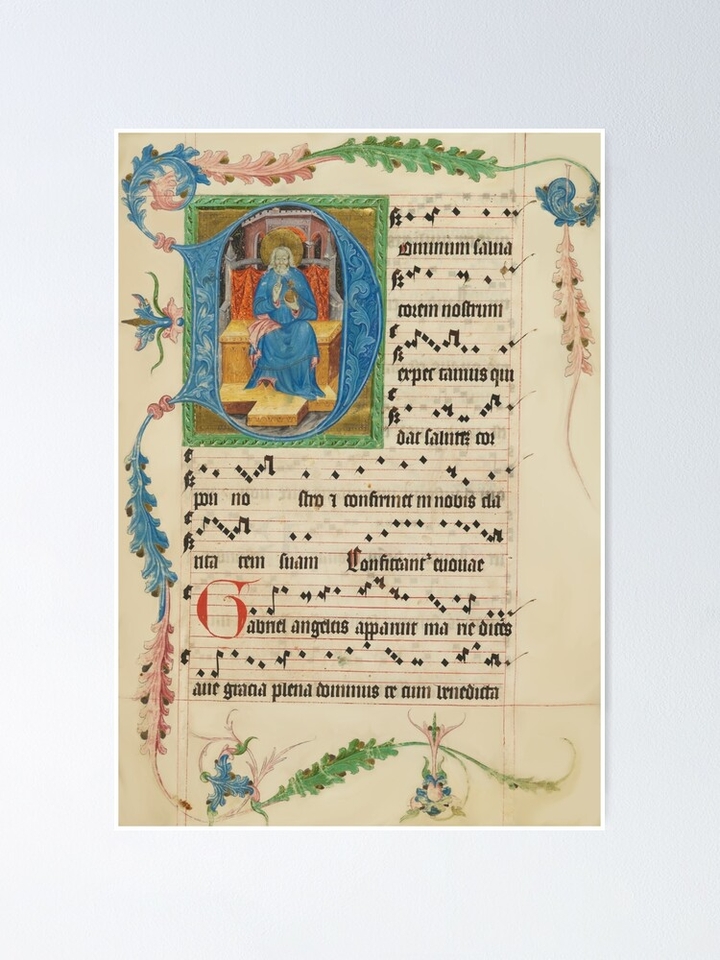 Dominum salua
torem nostrum
expec tamus qui
dat salutē cor
pori no stro ⁊ confirmet in nobis cla
rita tem suam Confiteant᷑ euouae
Gabriel angelus apparuit ma rie dicēs
aue gracia plena dominus te cum benedicta